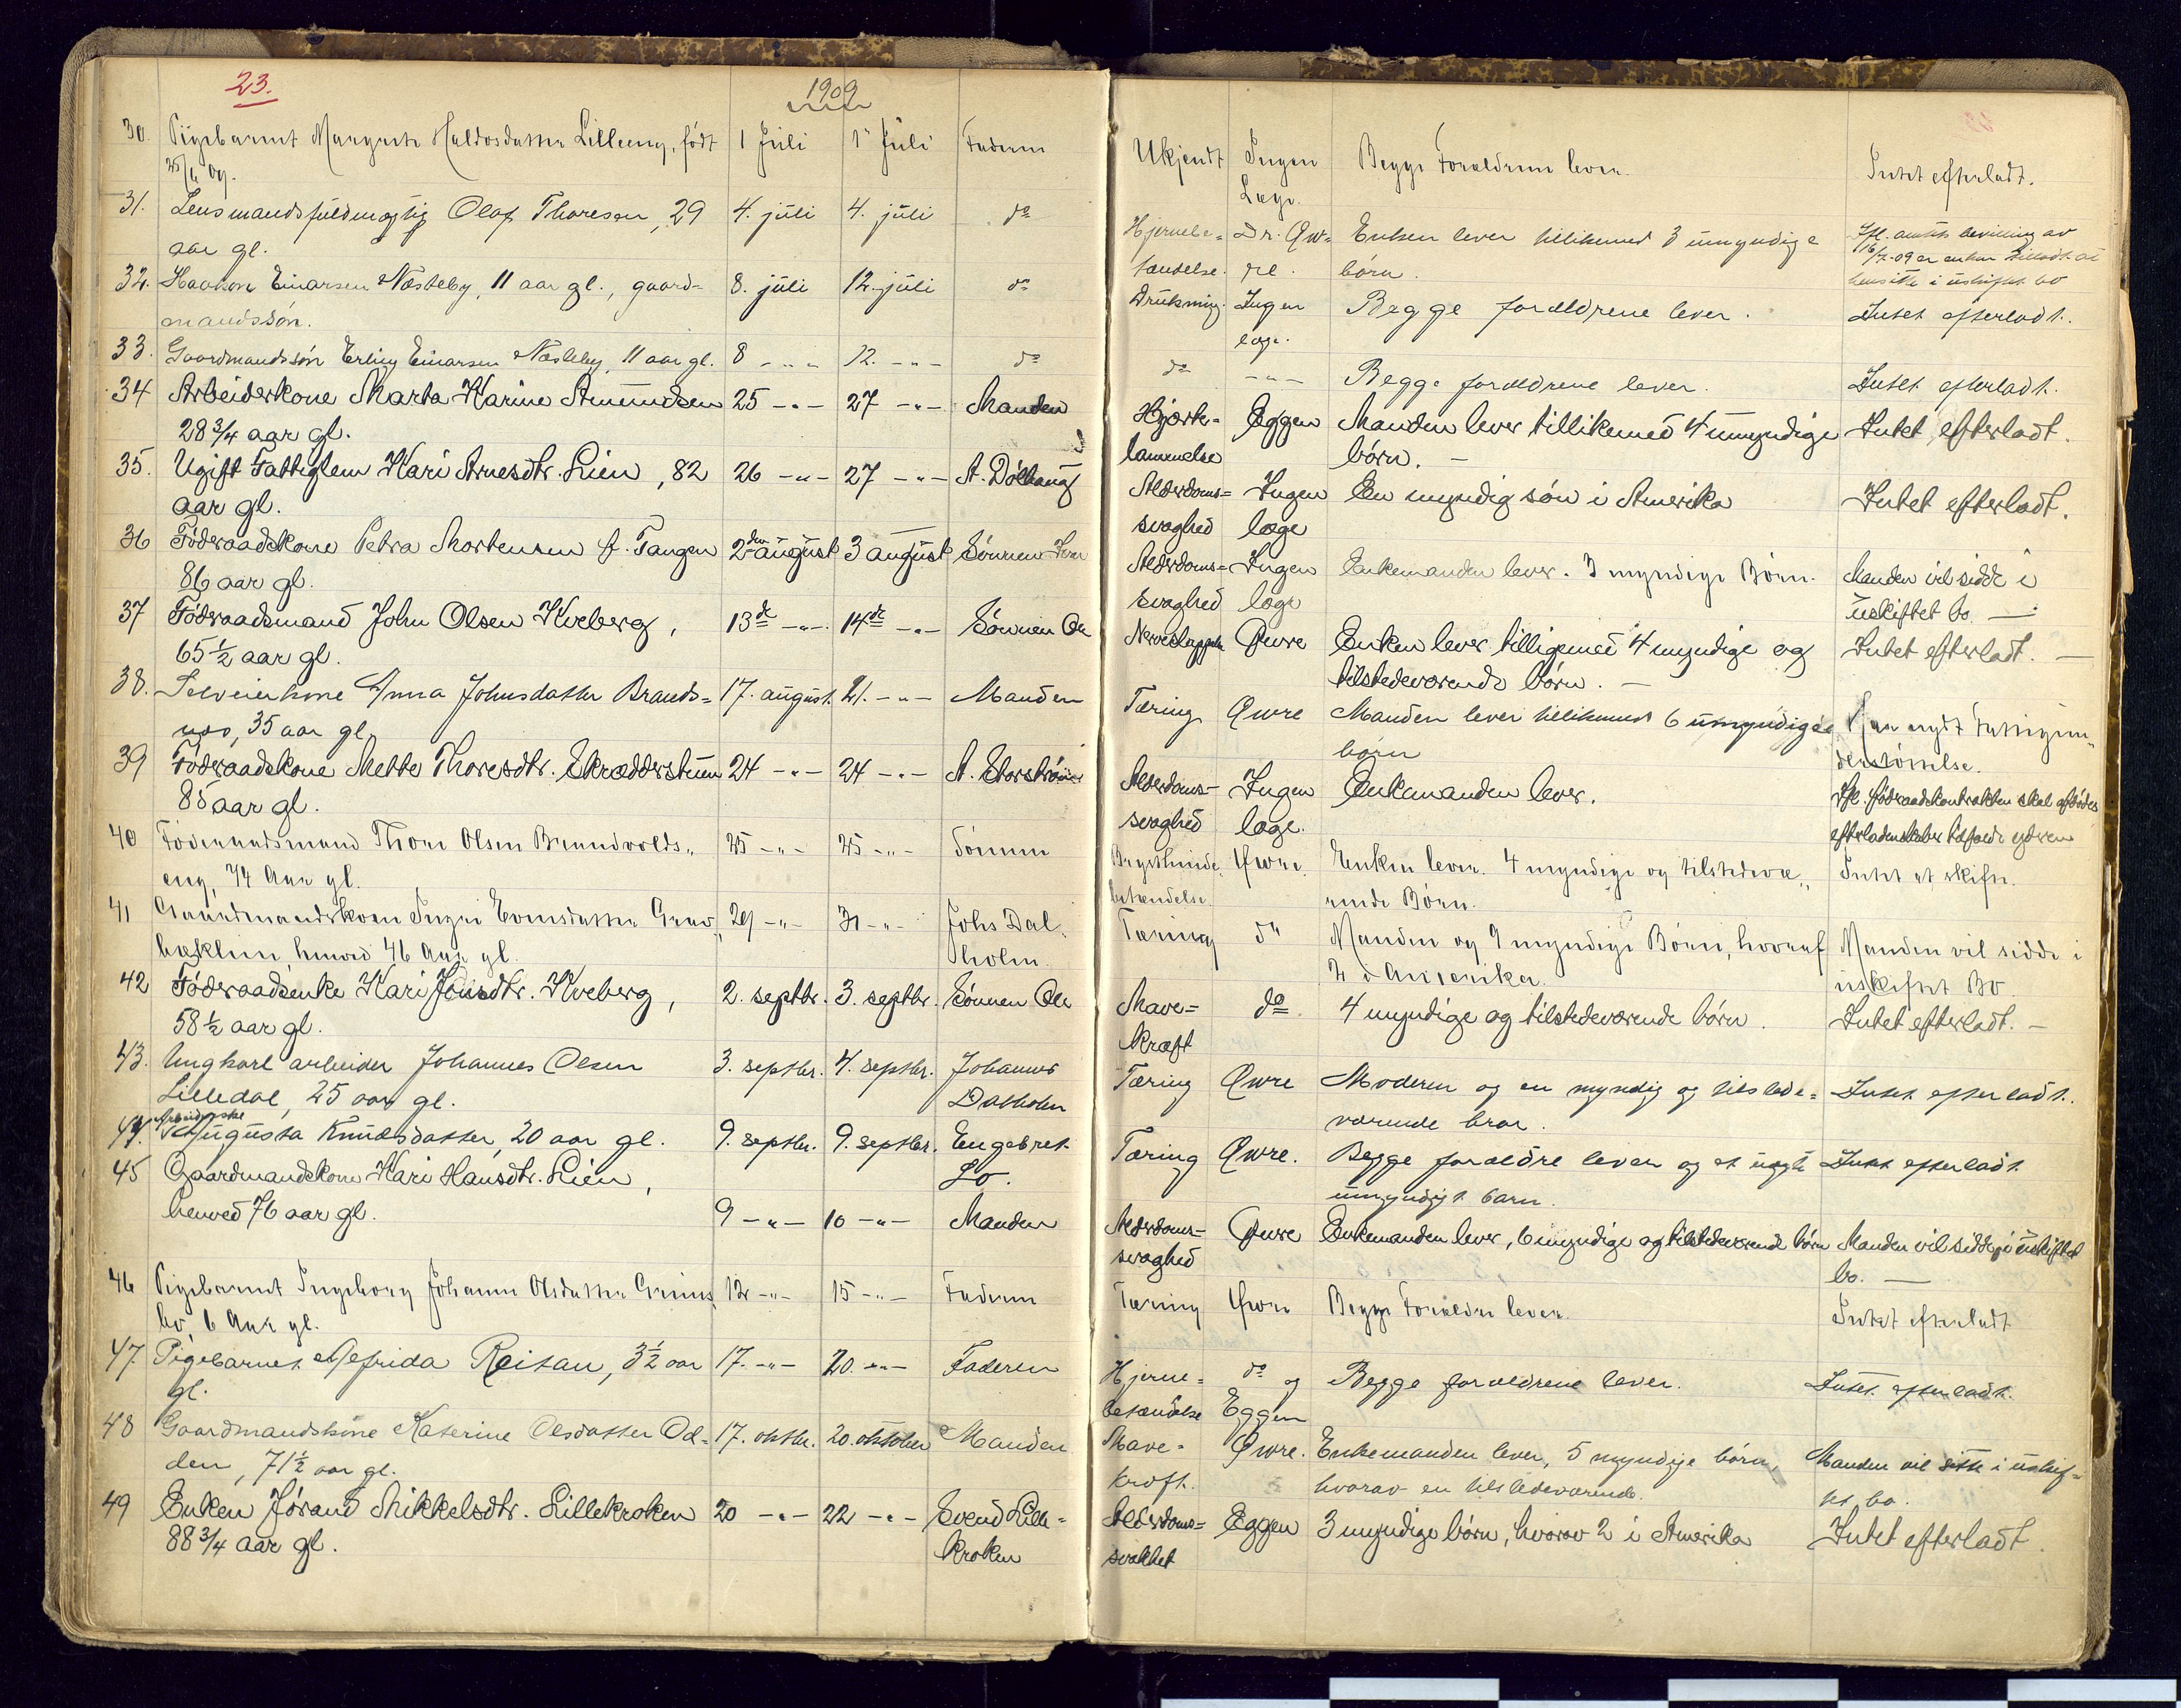 23.
1909
30. Pigebarnet Margrete Haldosdatter Lilleeng, født 1 Juli 1 Juli Faderen
25/6 09.
31. Lensmandsfuldmægtig Olaf Thoresen, 29 4. juli 4. juli do
aar gl.
32. Haakon Einarsen Næsteby, 11 aar gl., gaard- 8. juli 12. juli do
mandssøn.
33. Gaardmandssøn Erling Einarsen Næsteby, 11 aar gl. 8 -"- 12. -"- do
34 Arbeiderkone Marta Karine Amundsen 25 -"- 27 -"- Manden
28 3/4 aar gl.
35. Ugift Fattiglem Kari Arnesdtr. Lien, 82 26 -"- 27 -"- A. Dølhaug
aar gl.
36 Føderaadskone Petra Mortensen f. Tangen 2den august 3 august Sønnen Iver
86 aar gl.
37 Føderaadsmand John Olsen Kveberg, 13de -"- 14de -"- Sønnen Ole
65 1/2 aar gl.
38. Selveierkone Anna Johnsdatter Brands= 17. august. 21. -"- Manden
35 aar gl.
39 Føderaadskone Mette Thoresdtr. Skrædderstuen 24 -"- 24 -"- A. Storstrøm
85 aar gl.
40 Føderaadsmand Thore Olsen Brundvolds„ 25 -"- 25 -"- Sønnen
eng, 74 Aar gl.
41 Gaardmandskone Ingri Evensdatter Grav„ 29 -"- 31 -"- Johs Dal„
bæklien, henved 46 Aar gl. holm
42 Føderaadsenke Kari Jonsdtr. Kveberg, 2. septbr. 3. septbr. Sønnen Ole
58 1/2 aar gl.
43. Ungkarl arbeider Johannes Olsen 3. septbr. 4. septbr. Johannes
Lilledal, 25 aar gl. Dalholm
Arbeiderske
44. Augusta Knudsdatter, 20 aar gl. 9. septbr. 9. septbr. Engebret
45 Gaardmandskone Kari Hansdtr. Lien, Lo.
henved 76 aar gl. 9 -"- 10 -"- Manden
46 Pigebarnet Ingeborg Johanne Olsdatter Grims„ 12 -"- 15 -"- Faderen
bo, 6 Aar gl.
47. Pigebarnet Alfrida Reitan, 3 1/2 aar 17. -"- 20. -"- Faderen
gl.
48 Gaardmandskone Katerine Olsdatter Od= 17. oktbr. 20. oktober Manden
den, 71 1/2 aar gl.
49 Enken Jørand Mikkelsdtr. Lillekroken 20 -"- 22 -"- Svend Lille=
88 3/4 aar gl. kroken
Ukjendt Ingen Begge Forældrene lever. Intet efterladt.
Læge.
Hjernebe= Dr. Qw= Enken lever tillikemed 3 umyndige Ifl. amtets bevilling av
tændelse. re. børn. 16/7-09 er enken tilladt at
hensitte i uskiftet bo
Drukning. Ingen Begge forældrene lever. Intet efterladt.
læge.
do -"- Begge forældrene lever. Intet efterladt.
Hjerte= Eggen Manden lever tillikemed 4 umyndige Intet efterladt.
lammelse børn. —
Alderdoms= Ingen En myndig søn i Amerika Intet efterladt.
svaghed læge
Alderdoms= Ingen Enkemanden lever. 3 myndige Børn. Manden vil sidde i
svaghed læge uskiftet bo. —
Qwre Enken lever tilligemed 4 myndige og Intet efterladt. —
tilstedeværende børn. —
Tæring Qwre Manden lever tillikemed 6 umyndige Har nydt Fattigun„
børn derstøttelse.
Alderdoms- Ingen Enkemanden lever. Ifl. føderaadskontrakten skal afdødes
svaghed læge. efterladenskaber tilfalde yderen
Brysthinde„ Qwre. Enken lever. 4 myndige og tilstedevæ„ Intet at skifte.
betændelse. rende Børn.
Tæring do Manden og 9 myndige Børn, hvoraf Manden vil sidde i
2 i Amerika. uskiftet Bo
Mave= do. 4 myndige og tilstedeværende børn. Intet efterladt. —
kræft
Tæring Qwre Moderen og en myndig og tilstede= Intet efterladt.
værende bror.
Tæring Qwre. Begge forældre lever og et uægte Intet efterladt
umyndigt barn.
Alderdoms- Qwre Enkemanden lever, 6 myndige og tilstedeværende børn Manden vil sidde i uskiftet
svaghed bo. —
Tæring Qwre Begge Forældre lever. Intet efterladt
Hjerne= do og Begge forældrene lever. Intet efterladt.
betændelse Eggen
Mave= Qwre. Enkemanden lever, 5 myndige børn, Manden vil sitte i uskif=
kræft. hvorav en tilstedeværende. tet bo.
Alderdoms= Eggen 3 myndige børn, hvorav 2 i Amerika Intet efterladt.
svakhet